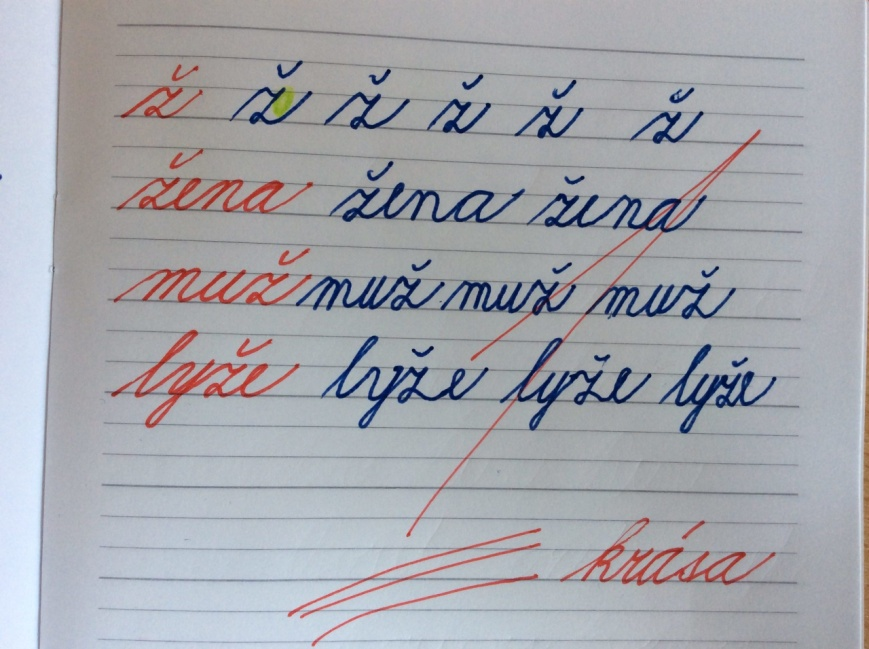 ž ž ž ž ž ž
žena žena žena
muž muž muž muž
lyže lyže lyže lyže
krása